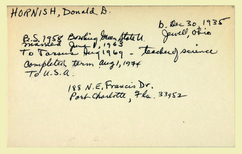 HORNISH, Donald B.
b. Dec 30, 1935
Jewell, Ohio
B.S. 1958 Bowling Green State U.
married June 9, 1963
To Tarsus Aug 1969 - teacher of science
Completes term Aug 1, 1974
To U.S.A.
188 N.E. Francis Dr.
Port Charlotte, Fla. 33952